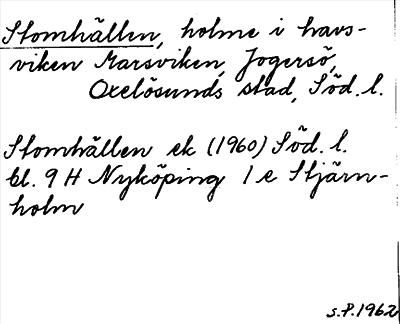 Stomhällen, holme i havs-
viken Marsviken, Jogersö,
Oxelösunds stad, Söd. l.
Stomhällen ek (1960) Söd. l.
bl. 9 H Nyköping 1 e Stjärn-
holm
S.P. 1962